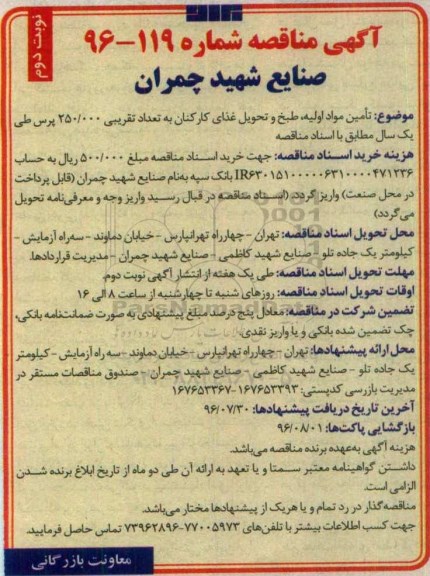 نوبت دوم
آگهی مناقصه شماره ۱۱۹-۹۶
صنایع شهید چمران
موضوع: تأمین مواد اولیه، طبخ و تحویل غذای کارکنان به تعداد تقریبی ۲۵۰/۰۰۰ پرس طی
یک سال مطابق با اسناد مناقصه
هزینه خرید اسناد مناقصه: جهت خرید اسناد مناقصه مبلغ ۵۰۰/۰۰۰ ریال به حساب
بانک سپه به‌نام صنایع شهید چمران (قابل پرداخت
در محل صنعت) واریز گردد. (اسناد مناقصه در قبال رسید واریز وجه و معرفی‌نامه تحویل
می‌گردد)
محل تحویل اسناد مناقصه: تهران - چهارراه تهرانپارس - خیابان دماوند - سه‌راه آزمایش -
کیلومتر یک جاده تلو - صنایع شهید کاظمی - صنایع شهید چمران - مدیریت قراردادها.
مهلت تحویل اسناد مناقصه: طی یک هفته از انتشار آگهی نوبت دوم.
اوقات تحویل اسناد مناقصه: روزهای شنبه تا چهارشنبه از ساعت ۸ الی ۱۶
تضمین شرکت در مناقصه: معادل پنج درصد مبلغ پیشنهادی به صورت ضمانت‌نامه بانکی،
چک تضمین شده بانکی و یا واریز نقدی.
محل ارائه پیشنهادها: تهران - چهارراه تهرانپارس - خیابان دماوند - سه راه آزمایش - کیلومتر
یک جاده تلو - صنایع شهید کاظمی - صنایع شهید چمران - صندوق مناقصات مستقر در
مدیریت بازرسی کدپستی: ۱۶۷۶۵۳۳۹۳-۱۶۷۶۵۳۳۶۷
آخرین تاریخ دریافت پیشنهادها: ۹۶/۰۷/۳۰
بازگشایی پاکت‌ها: ۹۶/۰۸/۰۱
هزینه آگهی به‌عهده برنده مناقصه می‌باشد.
داشتن گواهینامه معتبر سمتا و یا تعهد به ارائه آن طی دو ماه از تاریخ ابلاغ برنده شدن
الزامی است.
مناقصه‌گذار در رد تمام و یا هریک از پیشنهادها مختار می‌باشد.
جهت کسب اطلاعات بیشتر با تلفن‌های ۷۷۰۰۵۹۷۳-۷۳۹۶۲۸۹۶ تماس حاصل فرمایید.
معاونت بازرگانی